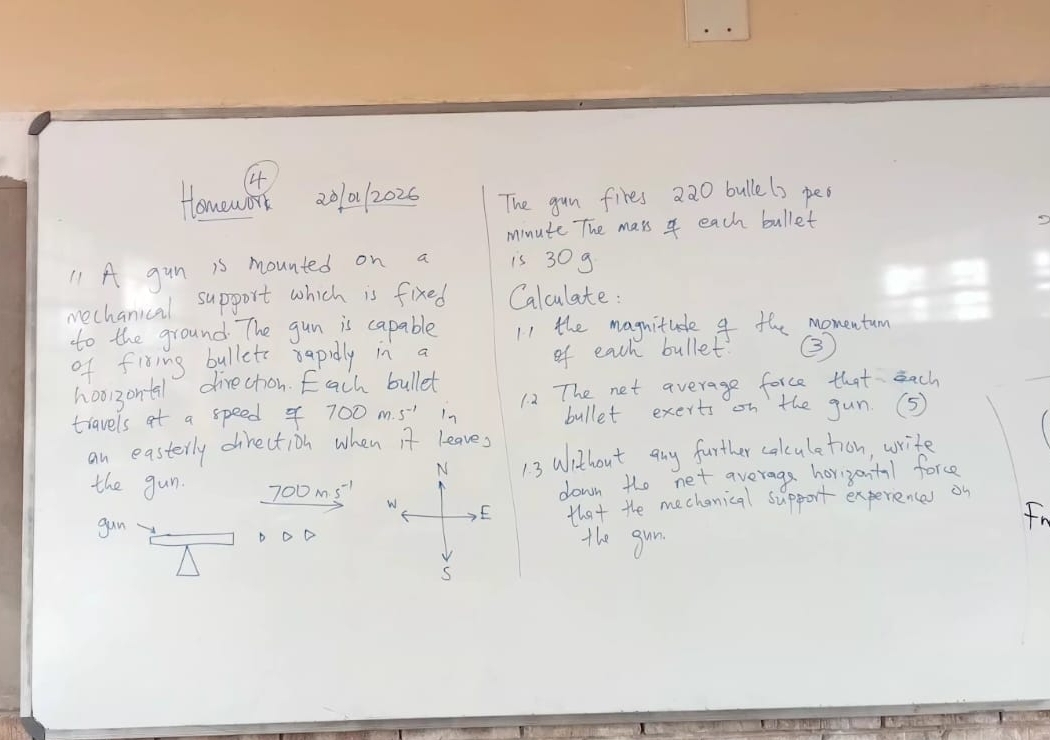 Homework 4 20/01/2026
1/ A gun is mounted on a
mechanical support which is fixed
to the ground. The gun is capable
of firing bullets rapidly in a
horizontal direction. Each bullet
travels at a speed of 700 m.s⁻¹ in
an easterly direction when it leaves
the gun.
700 m.s⁻¹
gun
N
W
E
S
The gun fires 220 bullets per
minute The mass of each bullet
is 30 g.
Calculate:
1.1 the magnitude of the momentum
of each bullet. (3)
1.2 The net average force that each
bullet exerts on the gun. (5)
1.3 Without any further calculation, write
down the net average horizontal force
that the mechanical support experiences on
the gun.